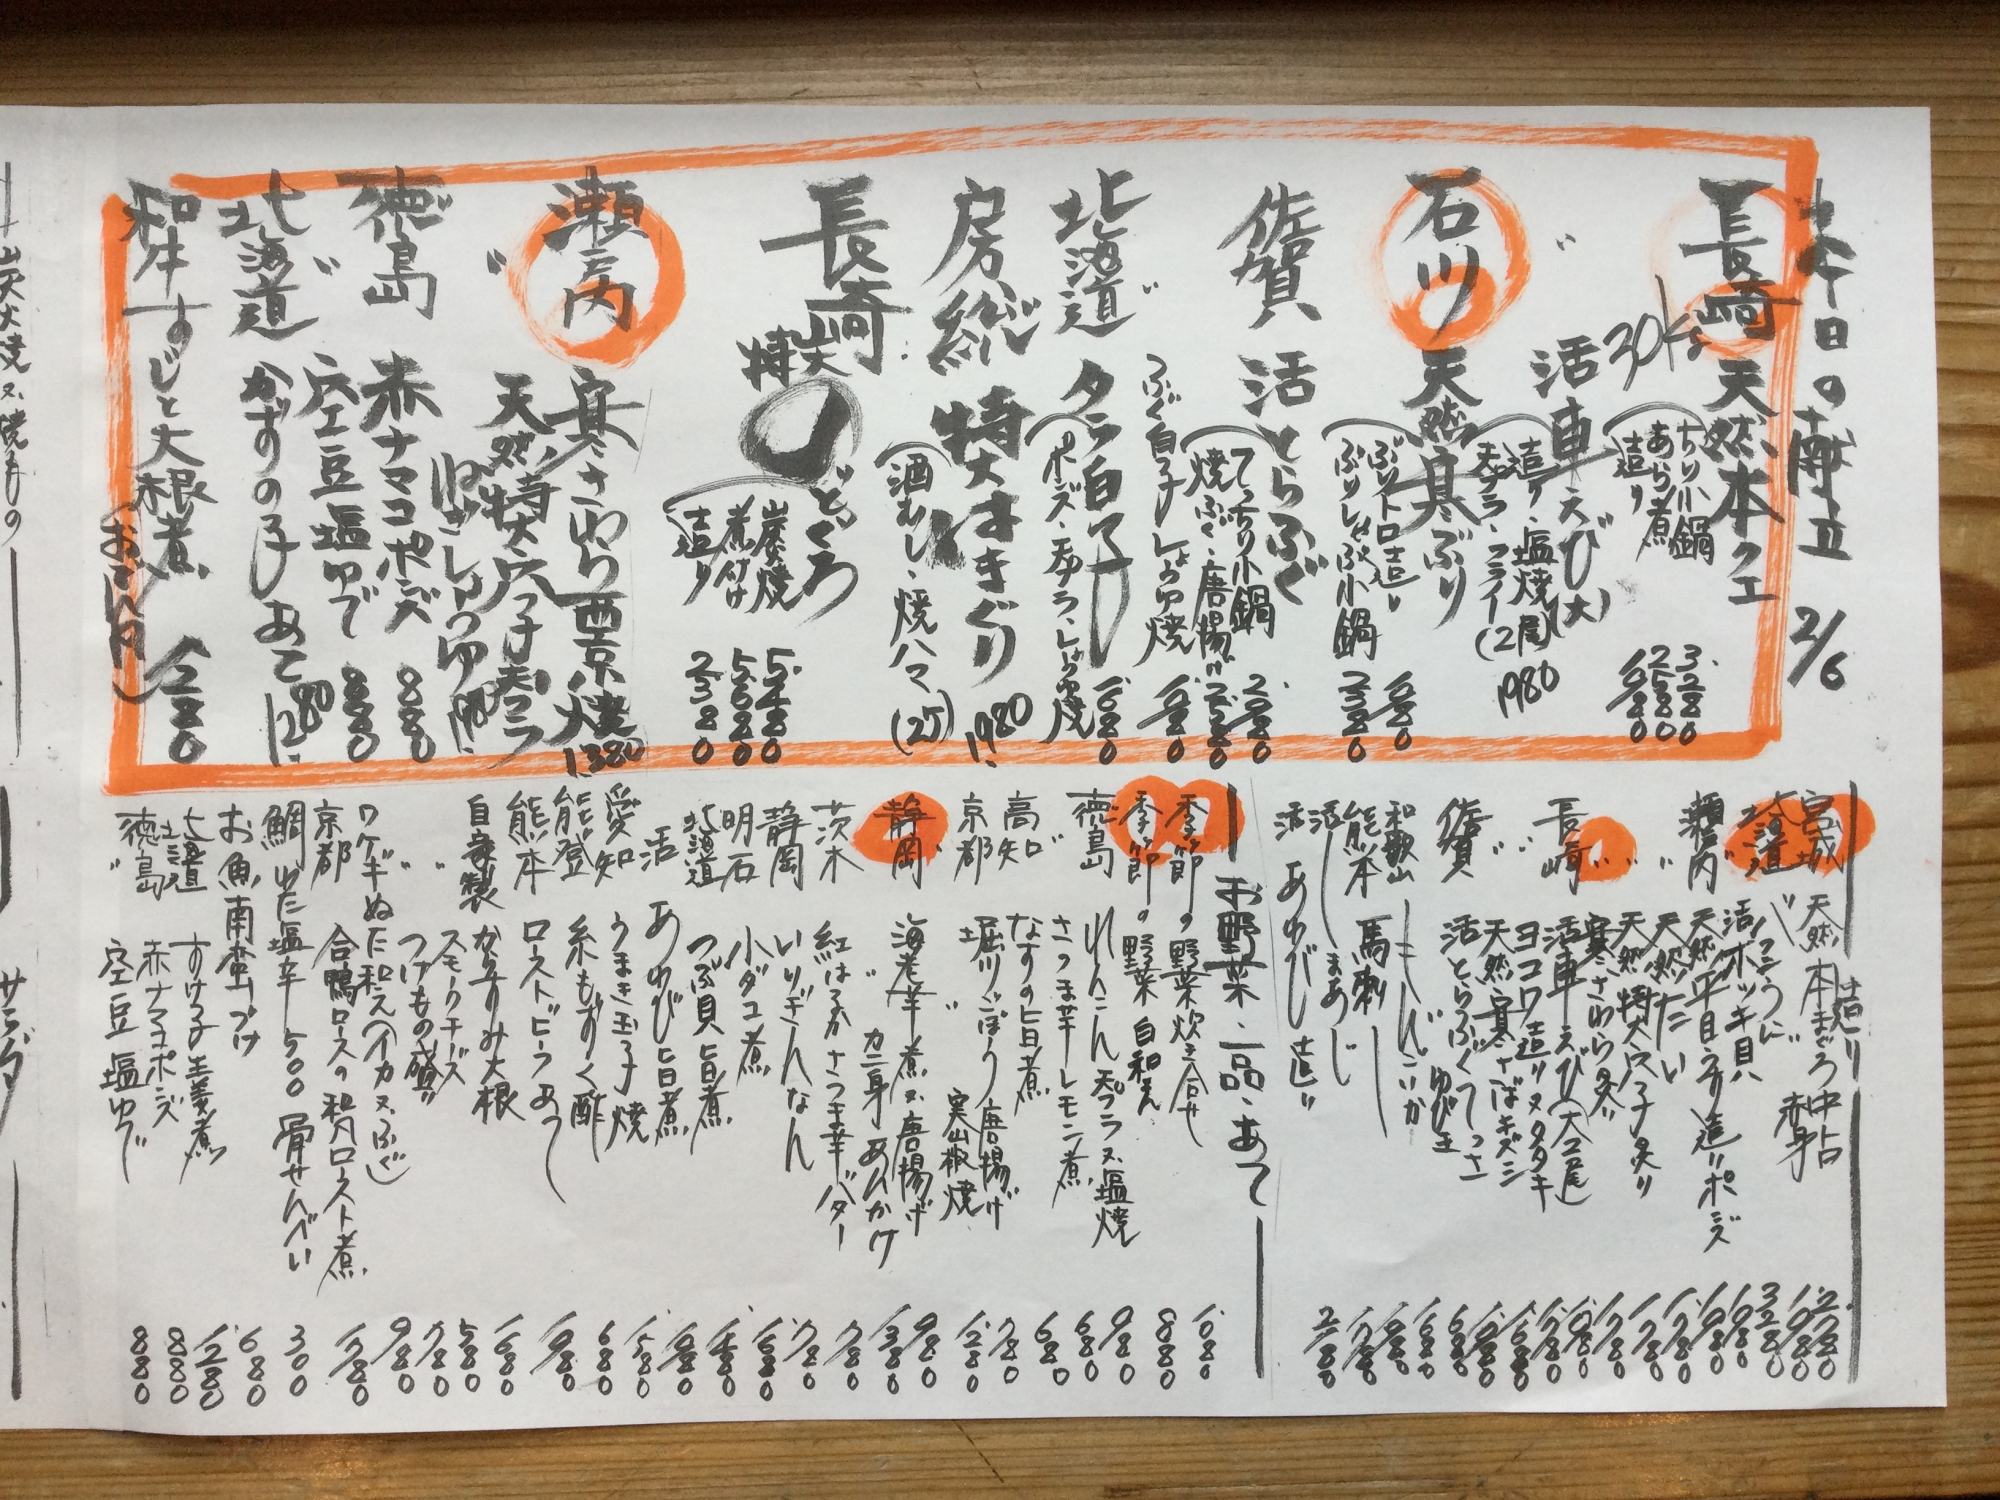 今日の献立 2/6
長崎 天然本クエ
30kg
ちり小鍋 3,280
あら煮 2,580
造り 1,980
〃 活車えび(大)
造り・塩焼
天ぷら・フライ(2尾) 1,980
石川 天然寒ぶり
ぶりトロ造り 1,980
ぶりしゃぶ小鍋 2,380
佐賀 活とらふぐ
てっちり小鍋 2,980
焼ふぐ・唐揚げ 2,280
ふぐ白子しょうゆ焼 1,980
北海道 タラ白子
ポンズ・天ぷら・しょうゆ焼 1,680
房総 特大はまぐり 1,980
(酒むし・焼ハマ(2ケ)
長崎 特大のどぐろ
炭焼 5,480
煮付け 5,680
造り 2,380
瀬戸内 寒さわら西京焼 1,380
〃 天然特大穴子天ぷら
ねぎしょうゆ 1,980
徳島 赤ナマコポンズ 880
〃 空豆塩ゆで 880
北海道 かずの子あて 1,280
和牛すじと大根煮 1,280
(おでん風)
造り
宮城 天然本まぐろ中占 2,780
〃 赤身 1,980
北海道 生うに 3,280
〃 活ホッキ貝 1,980
瀬戸内 天然平目うす造りポンズ 1,980
〃 天然たい 1,780
〃 天然特大穴子炙り 1,780
〃 寒さわら炙り 1,780
長崎 活車えび(大)2尾 1,980
〃 ヨコワ造り又タタキ 1,780
〃 天然寒さばキズシ 1,680
佐賀 活とらふぐてっさ 1,980
〃 ゆびき 680
和歌山 しんこいか 1,680
熊本 馬刺し 1,980
活〆まあじ 1,780
活あわび造り 2,780
お野菜・一品・あて
季節の野菜炊き合せ 1,080
季節の野菜白和え 880
徳島 れんこん天プラ又塩焼 980
〃 さつま芋レモン煮 680
高知 なすの旨煮 680
京都 堀川ごぼう唐揚げ 780
〃 実山椒焼 1,280
静岡 海老芋煮又唐揚げ 980
〃 カニ身あんかけ 1,380
茨木 紅はるかさつま芋バター 780
静岡 いりぎんなん 780
明石 小ダコ煮 1,680
北海道 つぶ貝旨煮 1,480
活あわび旨煮 1,980
愛知 うまき玉子焼 1,580
能登 糸もずく酢 680
熊本 ローストビーフあて 1,980
自家製 からすみ大根 1,680
〃 スモークチーズ 580
〃 つけもの盛り 780
ワケギぬた和え(イカ又ふぐ) 980
京都 合鴨ロースの和風ロースト煮 1,780
鯛わた塩辛 500 骨せんべい 300
お魚南蛮づけ 680
北海道 すけ子生姜煮 1,280
徳島 赤ナマコポンズ 880
〃 空豆塩ゆで 880